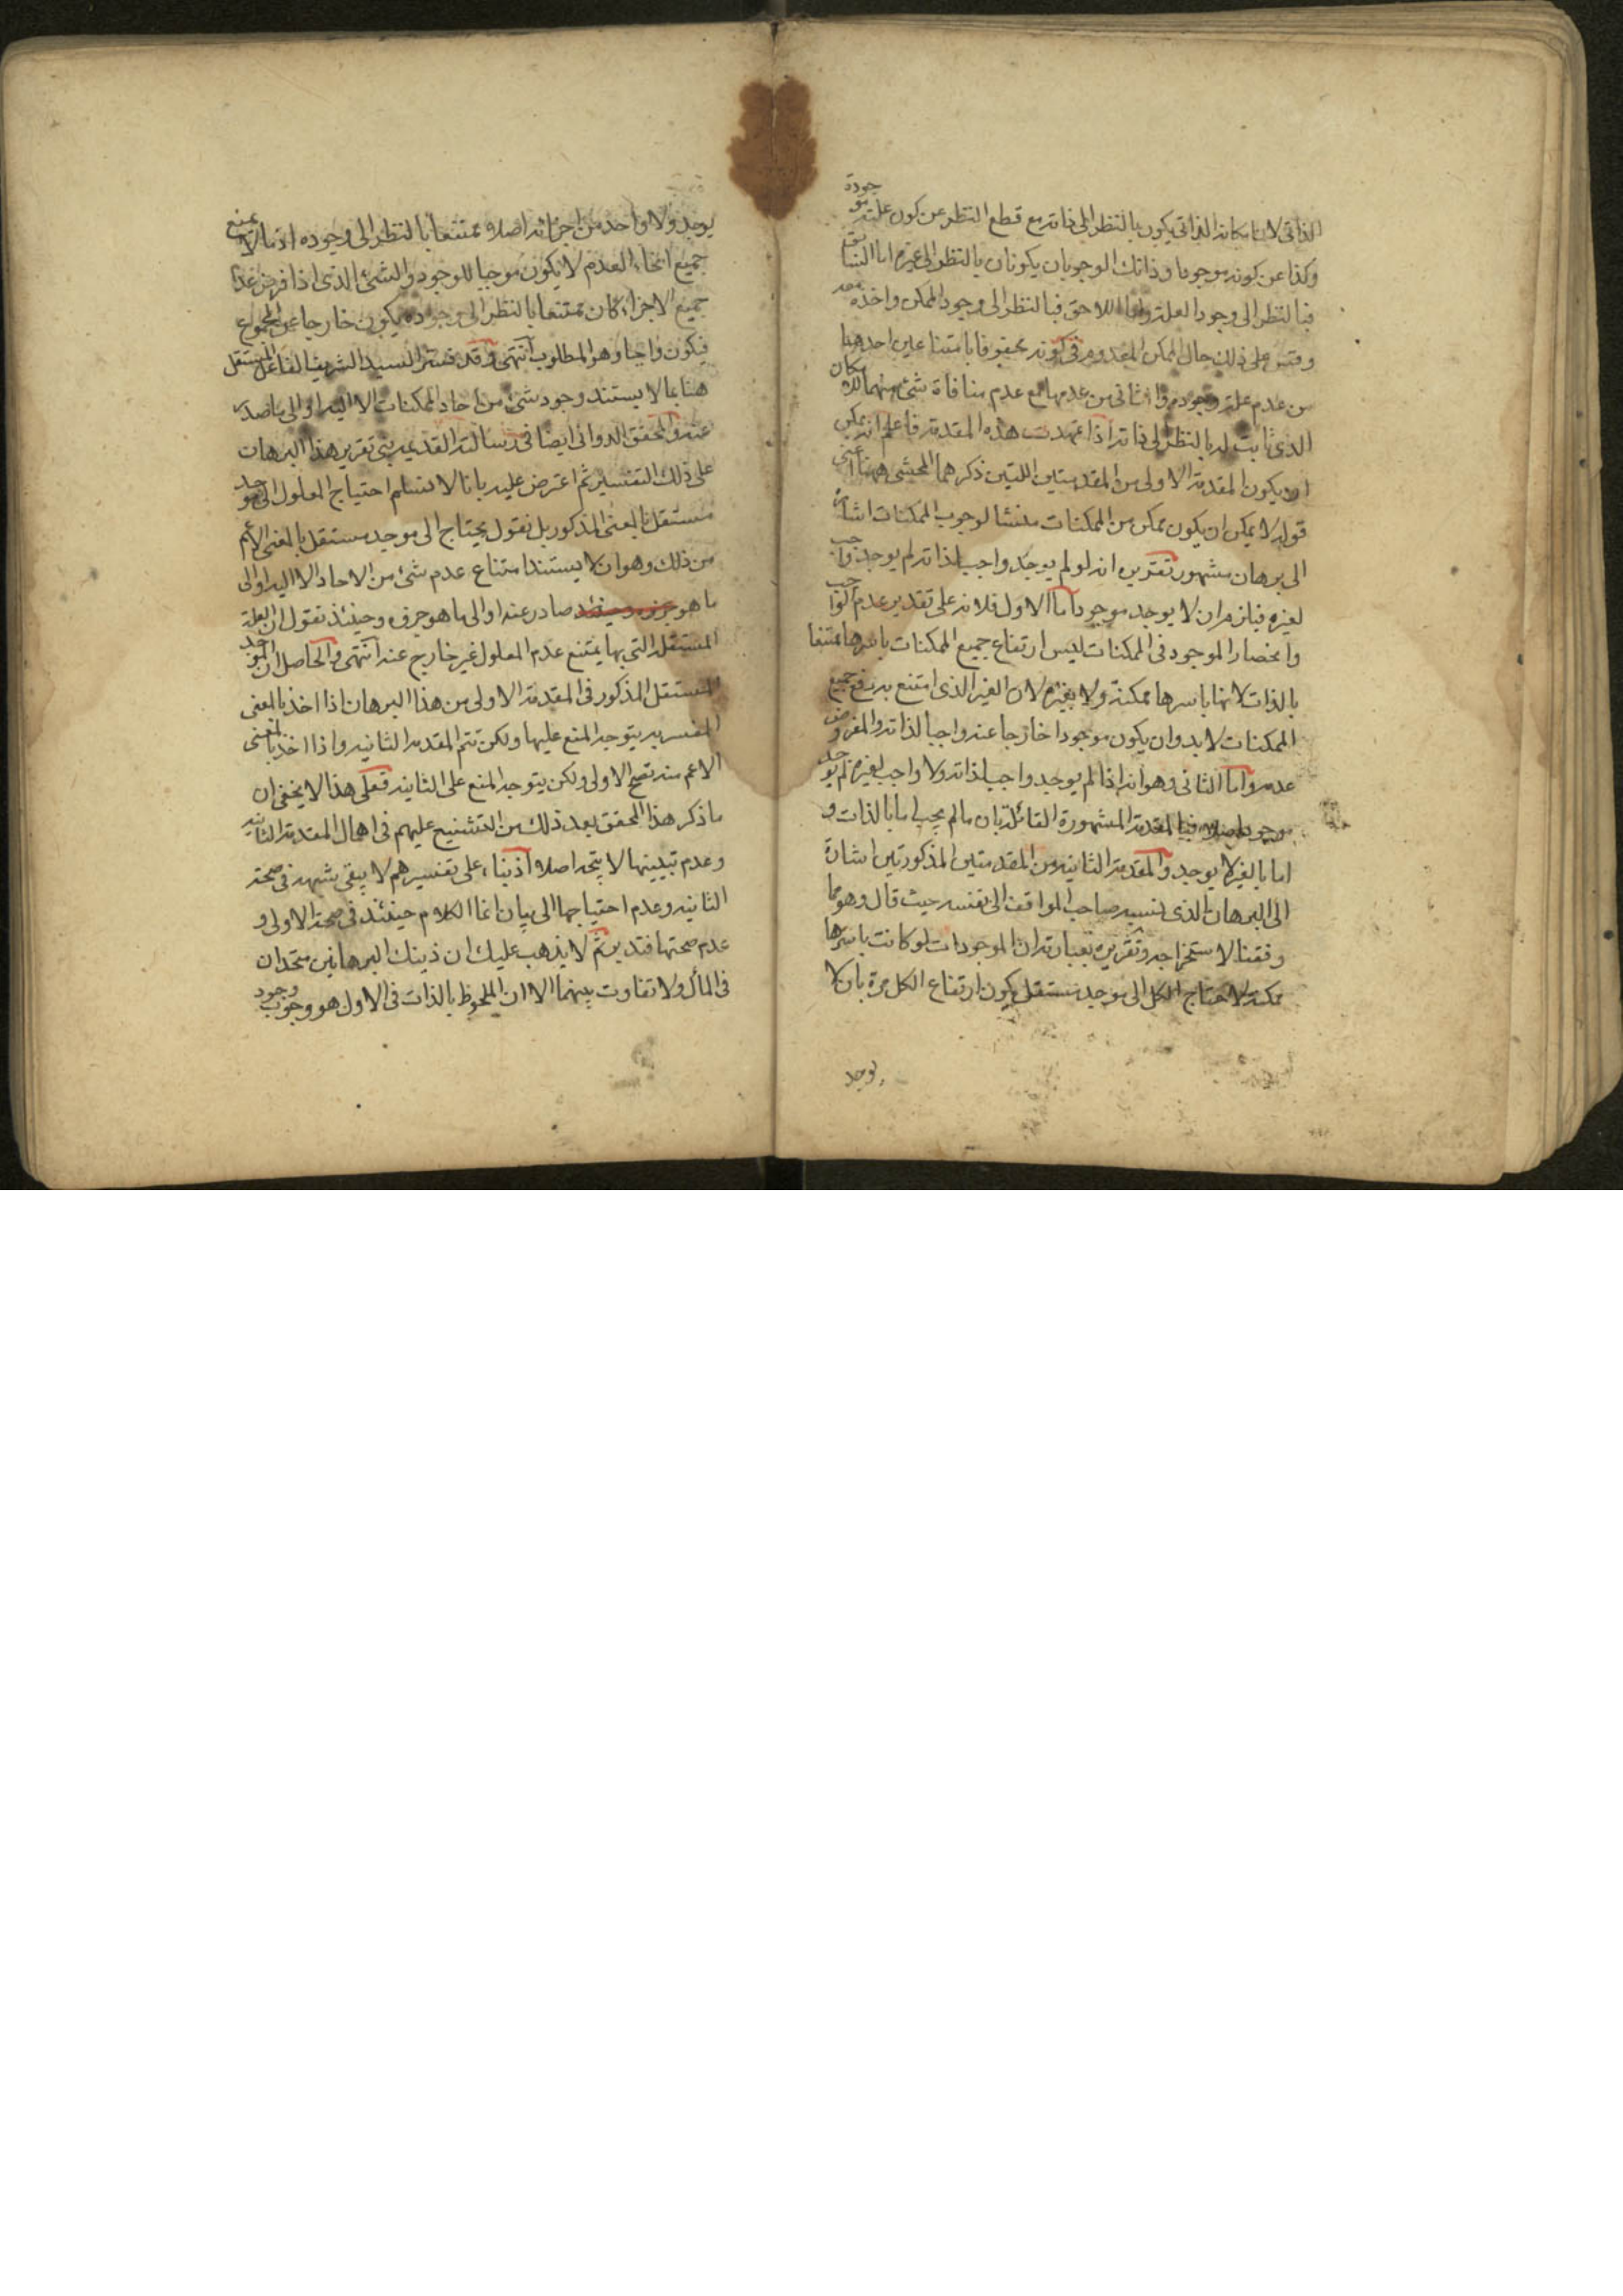 الذاتى لان امكانه الذاتى يكون بالنظر الى ذاته مع قطع النظر عن كون علته موجودة
وكذا عن كونه موجودا وذانك الوجوبان يكونان بالنظر الى غيره اما السابق
فبالنظر الى وجود العلة واما اللاحق فبالنظر الى وجود الممكن واخذه معه
وقس على ذلك حال الممكن المعدوم فى كونه محفوفا بامتناعين احدهما
من عدم علة وجوده والثانى من عدمها مع عدم منافاة شئ منهما للامكان
الذى ثابت له بالنظر الى ذاته اذا تمهدت هذه المقدمة فاعلم انه يمكن
ان يكون المقدمة الاولى من المقدمتين اللتين ذكرهما المحشى ههنا اعنى
قوله لا يمكن ان يكون ممكن من الممكنات منشأ لوجوب الممكنات اشارة
الى برهان مشهور تقريره انه لو لم يوجد واجب لذاته لم يوجد واجب
لغيره فيلزم ان لا يوجد موجود اما الاول فلانه على تقدير عدم الواجب
وانحصار الموجود فى الممكنات ليس ارتفاع جميع الممكنات باسرها ممتنعا
بالذات لانها باسرها ممكنة ولا بغيره لان الغير الذى امتنع به رفع جميع
الممكنات لا بد وان يكون موجودا خارجا عنه واجبا لذاته والمفروض
عدمه واما الثانى وهو انه اذا لم يوجد واجب لذاته ولا واجب لغيره لم يوجد
موجود اصلا فبالمقدمة المشهورة القائلة بان مالم يجب اما بالذات و
اما بالغير لا يوجد والمقدمة الثانية من المقدمتين المذكورتين اشارة
الى البرهان الذى نسبه صاحب المواقف الى نفسه حيث قال وهو مما
وفقنا لاستخراجه وتقريره بعبارته ان الموجودات لو كانت باسرها
ممكنة لاحتاج الكل الى موجد مستقل يكون ارتفاع الكل مرة بان لا
يوجد
يوجد ولا واحد من اجزائه اصلا ممتنعا بالنظر الى وجوده اذ ما لا يمتنع
جميع انحاء العدم لا يكون موجبا للوجود والشئ الذى اذا فرض عدم
جميع الاجزاء كان ممتنعا بالنظر الى وجوده يكون خارجا عن المجموع
فيكون واجبا وهو المطلوب انتهى وقد فسر السيد الشريف الفاعل المستقل
هنا بما لا يستند وجود شئ من آحاد الممكنات الا اليه او الى ما صدر
عنه والمحقق الدوانى ايضا فى رسالته القديمة بنى تقرير هذا البرهان
على ذلك التفسير ثم اعترض عليه بانا لا نسلم احتياج المعلول الى موجد
مستقل بالمعنى المذكور بل نقول يحتاج الى موجد مستقل بالمعنى الاعم
من ذلك وهو ان لا يستند امتناع عدم شئ من الاحاد الا اليه او الى
ما هو صادر عنه او الى ما هو جزؤه وحينئذ نقول ان العلة
المستقلة التى بها يمتنع عدم المعلول غير خارج عنه انتهى والحاصل ان الموجد
المستقل المذكور فى المقدمة الاولى من هذا البرهان اذا اخذ بالمعنى
المفسر به يتوجه المنع عليها ولكن تتم المقدمة الثانية واذا اخذ بالمعنى
الاعم منه تصح الاولى ولكن يتوجه المنع على الثانية فعلى هذا لا يخفى ان
ما ذكر هذا المحقق بعد ذلك من التشنيع عليهم فى اهمال المقدمة الثانية
وعدم تبيينها لا يتجه اصلا اذ بناء على تفسيرهم لا يبقى شبهة فى صحة
الثانية وعدم احتياجها الى بيان انما الكلام حينئذ فى صحة الاولى و
عدم صحتها فتدبر ثم لا يذهب عليك ان ذينك البرهانين متحدان
فى المآل ولا تفاوت بينهما الا ان الملحوظ بالذات فى الاول هو وجوب وجود